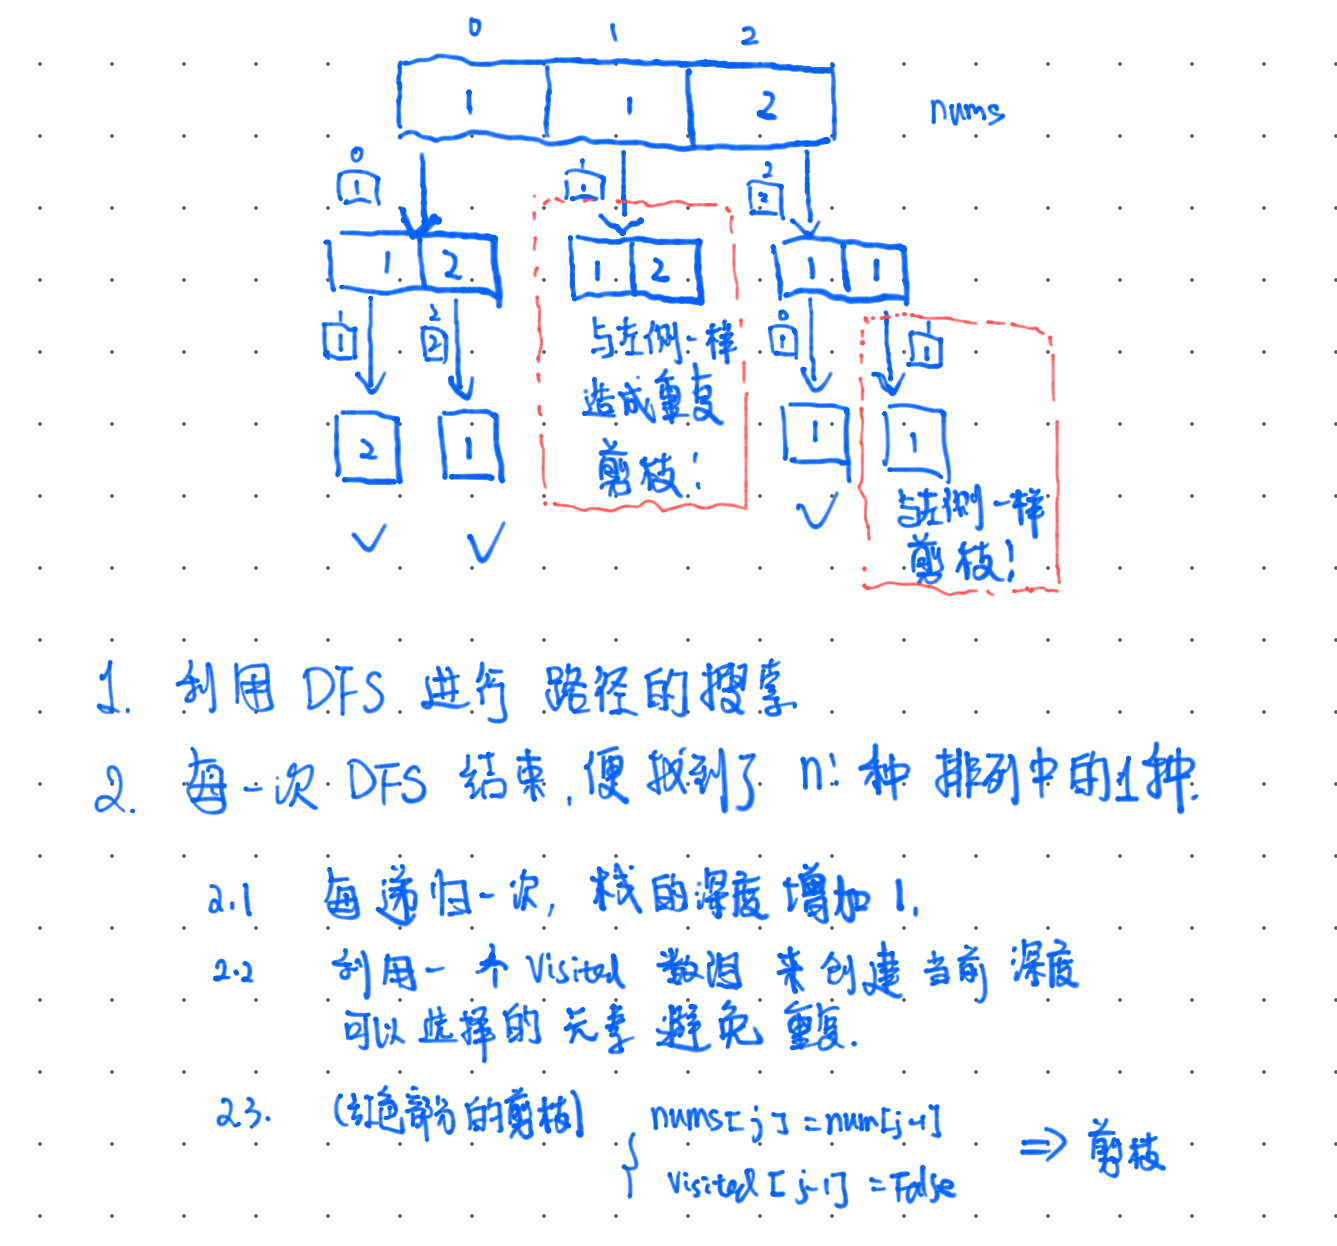 0 1 2
1 1 2 nums
0 1 2
1 1 2
1 2 1 2 1 1
1 2 0 1
1 2 1 1
与左侧一样
造成重复
剪枝!
2 1 1 1
与左侧一样
剪枝!
1. 利用 DFS 进行 路径的搜索
2. 每一次 DFS 结束,便找到了 n! 种 排列中的1种.
2.1 每递归一次, 栈的深度增加 1.
2.2 利用一个 Visited 数组 来创建当前深度
可以选择的元素 避免重复.
2.3. (红色部分的剪枝)
nums[j] = num[j-1]
Visited[j-1] = False
⇒ 剪枝